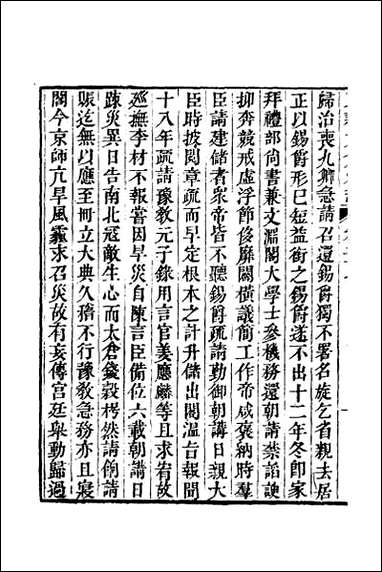 歸治喪九卿急請召還錫爵獨不署名旋乞省親去居
正以錫爵形已短益銜之錫爵遂不出十二年冬即家
拜禮部尚書兼文淵閣大學士參機務還朝請禁諂諛
抑奔競戒虛浮節侈靡闢橫議簡工作帝咸褒納時羣
臣請建儲者衆帝皆不聽錫爵疏請勤御朝講日親大
臣時披閱章疏而早定根本之計升儲出閣溫旨報聞
十八年疏請豫教元子錄用言官姜應麟等且求宥故
巡撫李材不報嘗因旱災自陳言臣備位六載朝講日
疎災異日告南北寇敵生心而太倉錢穀枵然請例請
賑迄無以應至冊立大典久稽不行豫教急務亦且寢
閣今京師亢旱風霾求召災故有妄傳宮廷舉動歸過